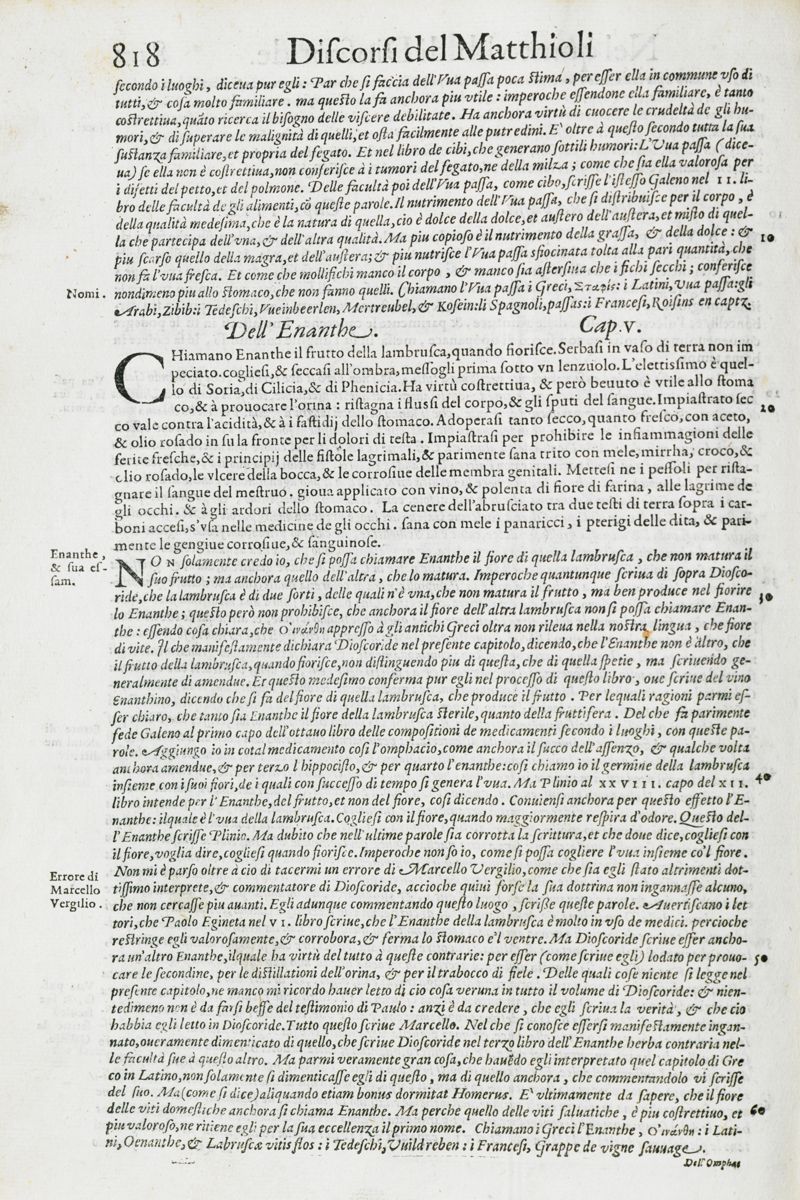 818 Discorsi del Matthioli
secondo i luoghi, diceua pur egli: Par che si faccia dell'Vua passa poca stima, per esser ella in commune vso di
tutti, & cosa molto familiare. ma questo la fa anchora piu vtile: imperoche essendone ella familiare, è tanto
costrettiua, quãto ricerca il bisogno delle viscere debilitate. Ha anchora virtù di cuocere le crudeltà de gli hu-
mori, & di superare le malignità di quelli, et osta facilmente alle putredini. E' oltre à questo secondo tutta la sua
sustanza familiare, et propria del fegato. Et nel libro de cibi, che generano sottili humori: L'Vua passa (dice-
ua) se ella non è costrettiua, non conferisce à i tumori del fegato, ne della milza; come che sia ella valorosa per
i difetti del petto, et del polmone. Delle facultà poi dell'Vua passa, come cibo, scrisse l'istesso Galeno nel 11. li-
bro delle facultà de gli alimenti, cõ queste parole. Il nutrimento dell'Vua passa, che si distribuisce per il corpo, è
della qualità medesima, che è la natura di quella, cio è dolce della dolce, et austero dell'austera, et misto di quel-
la che partecipa dell'vna, & dell'altra qualità. Ma piu copioso è il nutrimento della grassa, & della dolce: & 10
piu scarso quello della magra, et dell'austera; & piu nutrisce l'Vua passa sfiocinata tolta alla pari quantità, che
non fa l'vua fresca. Et come che mollifichi manco il corpo, & manco sia astersiua che i fichi secchi; conferisce
Nomi. nondimeno piu allo stomaco, che non fanno quelli. Chiamano l'Vua passa i Greci, Σταφὶς: i Latini, Vua passa: gli
Arabi, Zibib: i Tedeschi, Vueinbeerlen, Mertreubel, & Kosein: li Spagnoli, passas: i Francesi, Roisins en captz.
Dell' Enanthe. Cap. v.
CHiamano Enanthe il frutto della lambrusca, quando fiorisce. Serbasi in vaso di terra non im
peciato. cogliesi, & seccasi all'ombra, messogli prima sotto vn lenzuolo. L'elettissimo è quel-
lo di Soria, di Cilicia, & di Phenicia. Ha virtù costrettiua, & però beuuto è vtile allo stoma
co, & à prouocare l'orina: ristagna i flussi del corpo, & gli sputi del sangue. Impiastrato sec 20
co vale contra l'acidità, & à i fastidij dello stomaco. Adoperasi tanto secco, quanto fresco, con aceto,
& olio rosado in su la fronte per li dolori di testa. Impiastrasi per prohibire le infiammagioni delle
ferite fresche, & i principij delle fistole lagrimali, & parimente sana trito con mele, mirrha, croco, &
olio rosado, le vlcere della bocca, & le corrosiue delle membra genitali. Mettesi ne i pessoli per rista-
gnare il sangue del mestruo. gioua applicato con vino, & polenta di fiore di farina, alle lagrime de
gli occhi. & à gli ardori dello stomaco. La cenere dell'abrusciato tra due testi di terra sopra i car-
boni accesi, s'vsa nelle medicine de gli occhi. sana con mele i panaricci, i pterigi delle dita, & pari-
mente le gengiue corrosiue, & sanguinose.
Enanthe, & sua essam.
NON solamente credo io, che si possa chiamare Enanthe il fiore di quella lambrusca, che non matura il
suo frutto; ma anchora quello dell'altra, che lo matura. Imperoche quantunque scriua di sopra Diosco-
ride, che la lambrusca è di due sorti, delle quali n'è vna, che non matura il frutto, ma ben produce nel fiorire 30
lo Enanthe; questo però non prohibisce, che anchora il fiore dell'altra lambrusca non si possa chiamare Enan-
the: essendo cosa chiara, che Οἰνάνθη appresso à gli antichi Greci oltra non rileua nella nostra lingua, che fiore
di vite. Il che manifestamente dichiara Dioscoride nel presente capitolo, dicendo, che l'Enanthe non è altro, che
il frutto della lambrusca, quando fiorisce, non distinguendo piu di questa, che di quella spetie, ma scriuendo ge-
neralmente di amendue. Et questo medesimo conferma pur egli nel processo di questo libro, oue scriue del vino
Enanthino, dicendo che si fa del fiore di quella lambrusca, che produce il frutto. Per lequali ragioni parmi es-
ser chiaro, che tanto sia Enanthe il fiore della lambrusca sterile, quanto della fruttifera. Del che fa parimente
fede Galeno al primo capo dell'ottauo libro delle compositioni de medicamenti secondo i luoghi, con queste pa-
role. Aggiungo io in cotal medicamento cosi l'omphacio, come anchora il succo dell'assenzo, & qualche volta
anchora amendue, & per terzo l hippocisto, & per quarto l'enanthe: cosi chiamo io il germine della lambrusca
insieme con i suoi fiori, de i quali con successo di tempo si genera l'vua. Ma Plinio al XXVIII. capo del XII. 40
libro intende per l'Enanthe, del frutto, et non del fiore, cosi dicendo. Conuiensi anchora per questo effetto l'E-
nanthe: ilquale è l'vua della lambrusca. Cogliesi con il fiore, quando maggiormente respira d'odore. Questo del-
l'Enanthe scrisse Plinio. Ma dubito che nell'ultime parole sia corrotta la scrittura, et che doue dice, cogliesi con
il fiore, voglia dire, cogliesi quando fiorisce. Imperoche non so io, come si possa cogliere l'vua insieme co'l fiore.
Errore di Marcello Vergilio.
Non mi è parso oltre à cio di tacermi un errore di Marcello Vergilio, come che sia egli stato altrimenti dot-
tissimo interprete, & commentatore di Dioscoride, accioche quiui forse la sua dottrina non ingannasse alcuno,
che non cercasse piu auanti. Egli adunque commentando questo luogo, scrisse queste parole. Auertiscano i let
tori, che Paolo Egineta nel VI. libro scriue, che l'Enanthe della lambrusca è molto in vso de medici. percioche
restringe egli valorosamente, & corrobora, & ferma lo stomaco e'l ventre. Ma Dioscoride scriue esser ancho-
ra un'altro Enanthe, ilquale ha virtù del tutto à queste contrarie: per esser (come scriue egli) lodato per prouo- 50
care le secondine, per le distillationi dell'orina, & per il trabocco di fiele. Delle quali cose niente si legge nel
presente capitolo, ne manco mi ricordo hauer letto di cio cosa veruna in tutto il volume di Dioscoride: & nien-
tedimeno non è da farsi beffe del testimonio di Paulo: anzi è da credere, che egli scriua la verità, & che cio
habbia egli letto in Dioscoride. Tutto questo scriue Marcello. Nel che si conosce essersi manifestamente ingan-
nato, oueramente dimenticato di quello, che scriue Dioscoride nel terzo libro dell'Enanthe herba contraria nel-
le facultà sue à questo altro. Ma parmi veramente gran cosa, che hauẽdo egli interpretato quel capitolo di Gre
co in Latino, non solamente si dimenticasse egli di questo, ma di quello anchora, che commentandolo vi scrisse
del suo. Ma (come si dice) aliquando etiam bonus dormitat Homerus. E' vltimamente da sapere, che il fiore
delle viti domestiche anchora si chiama Enanthe. Ma perche quello delle viti saluatiche, è piu costrettiuo, et 60
piu valoroso, ne ritiene egli per la sua eccellenza il primo nome. Chiamano i Greci l'Enanthe, Οἰνάνθη: i Lati-
ni, Oenanthe, & Labruscæ vitis flos: i Tedeschi, Vuildreben: i Francesi, Grappe de vigne sauuage.
Dell' Ompha